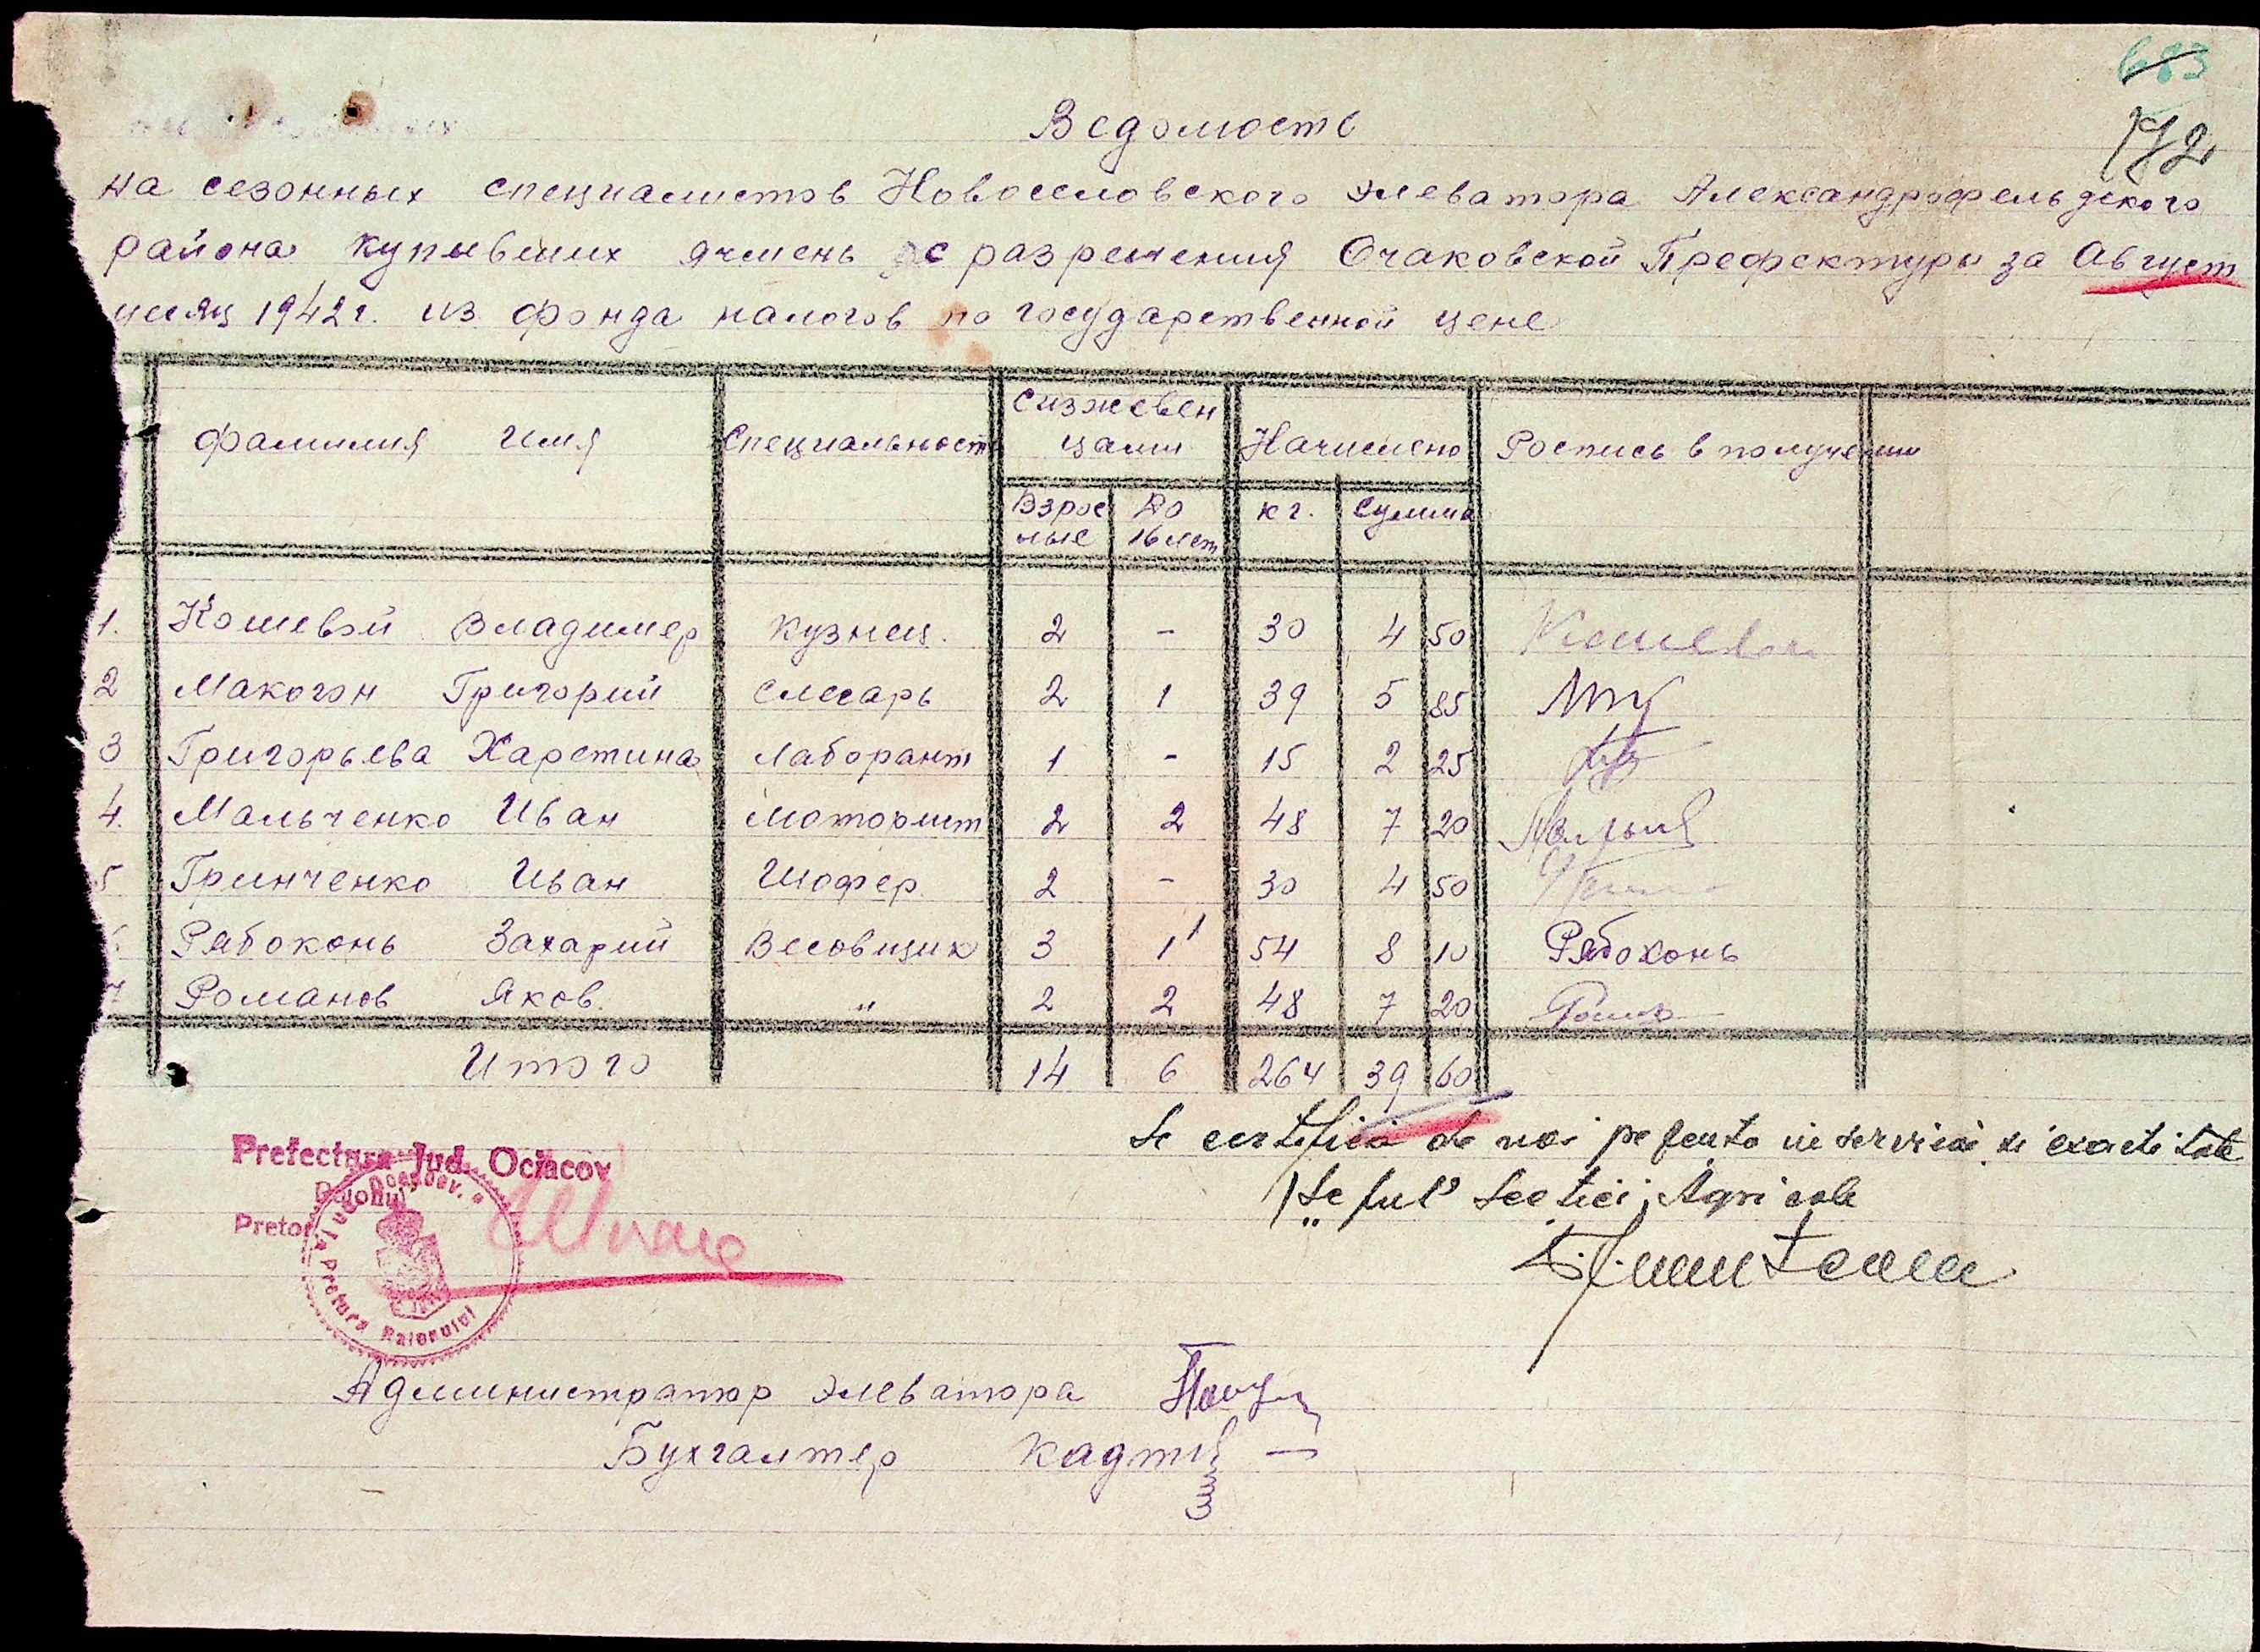 683
172
Ведомость
на сезонных специалистов Новоселовского элеватора Александрофельдского
района купывших ячмень с разрешения Очаковской Префектуры за Август
месяц 1942 г. из фонда налогов по государственной цене
фамилия имя Специальность Сизжевен цами Начислено Роспись в получении
Взрос лые До 16 лет кг. Сумма
1. Кошевой Владимер кузнец. 2 - 30 4 50 Кошевой
2 Макогон Григорий Слесарь 2 1 39 5 85
3 Григорьева Харетина Лаборант 1 - 15 2 25
4. Мальченко Иван Моторист 2 2 48 7 20
5 Гринченко Иван Шофер. 2 - 30 4 50
Рябоконь Захарий Весовщик 3 1 54 8 10 Рябоконь
7 Романов Яков. " 2 2 48 7 20
Итого 14 6 264 39 60
Se certifică de noi pe
Prefectura Jud. Ociacov
Șeful Secției Agricole
Pretor
Pretura Raionului
Администратор элеватора
Бухгалтер